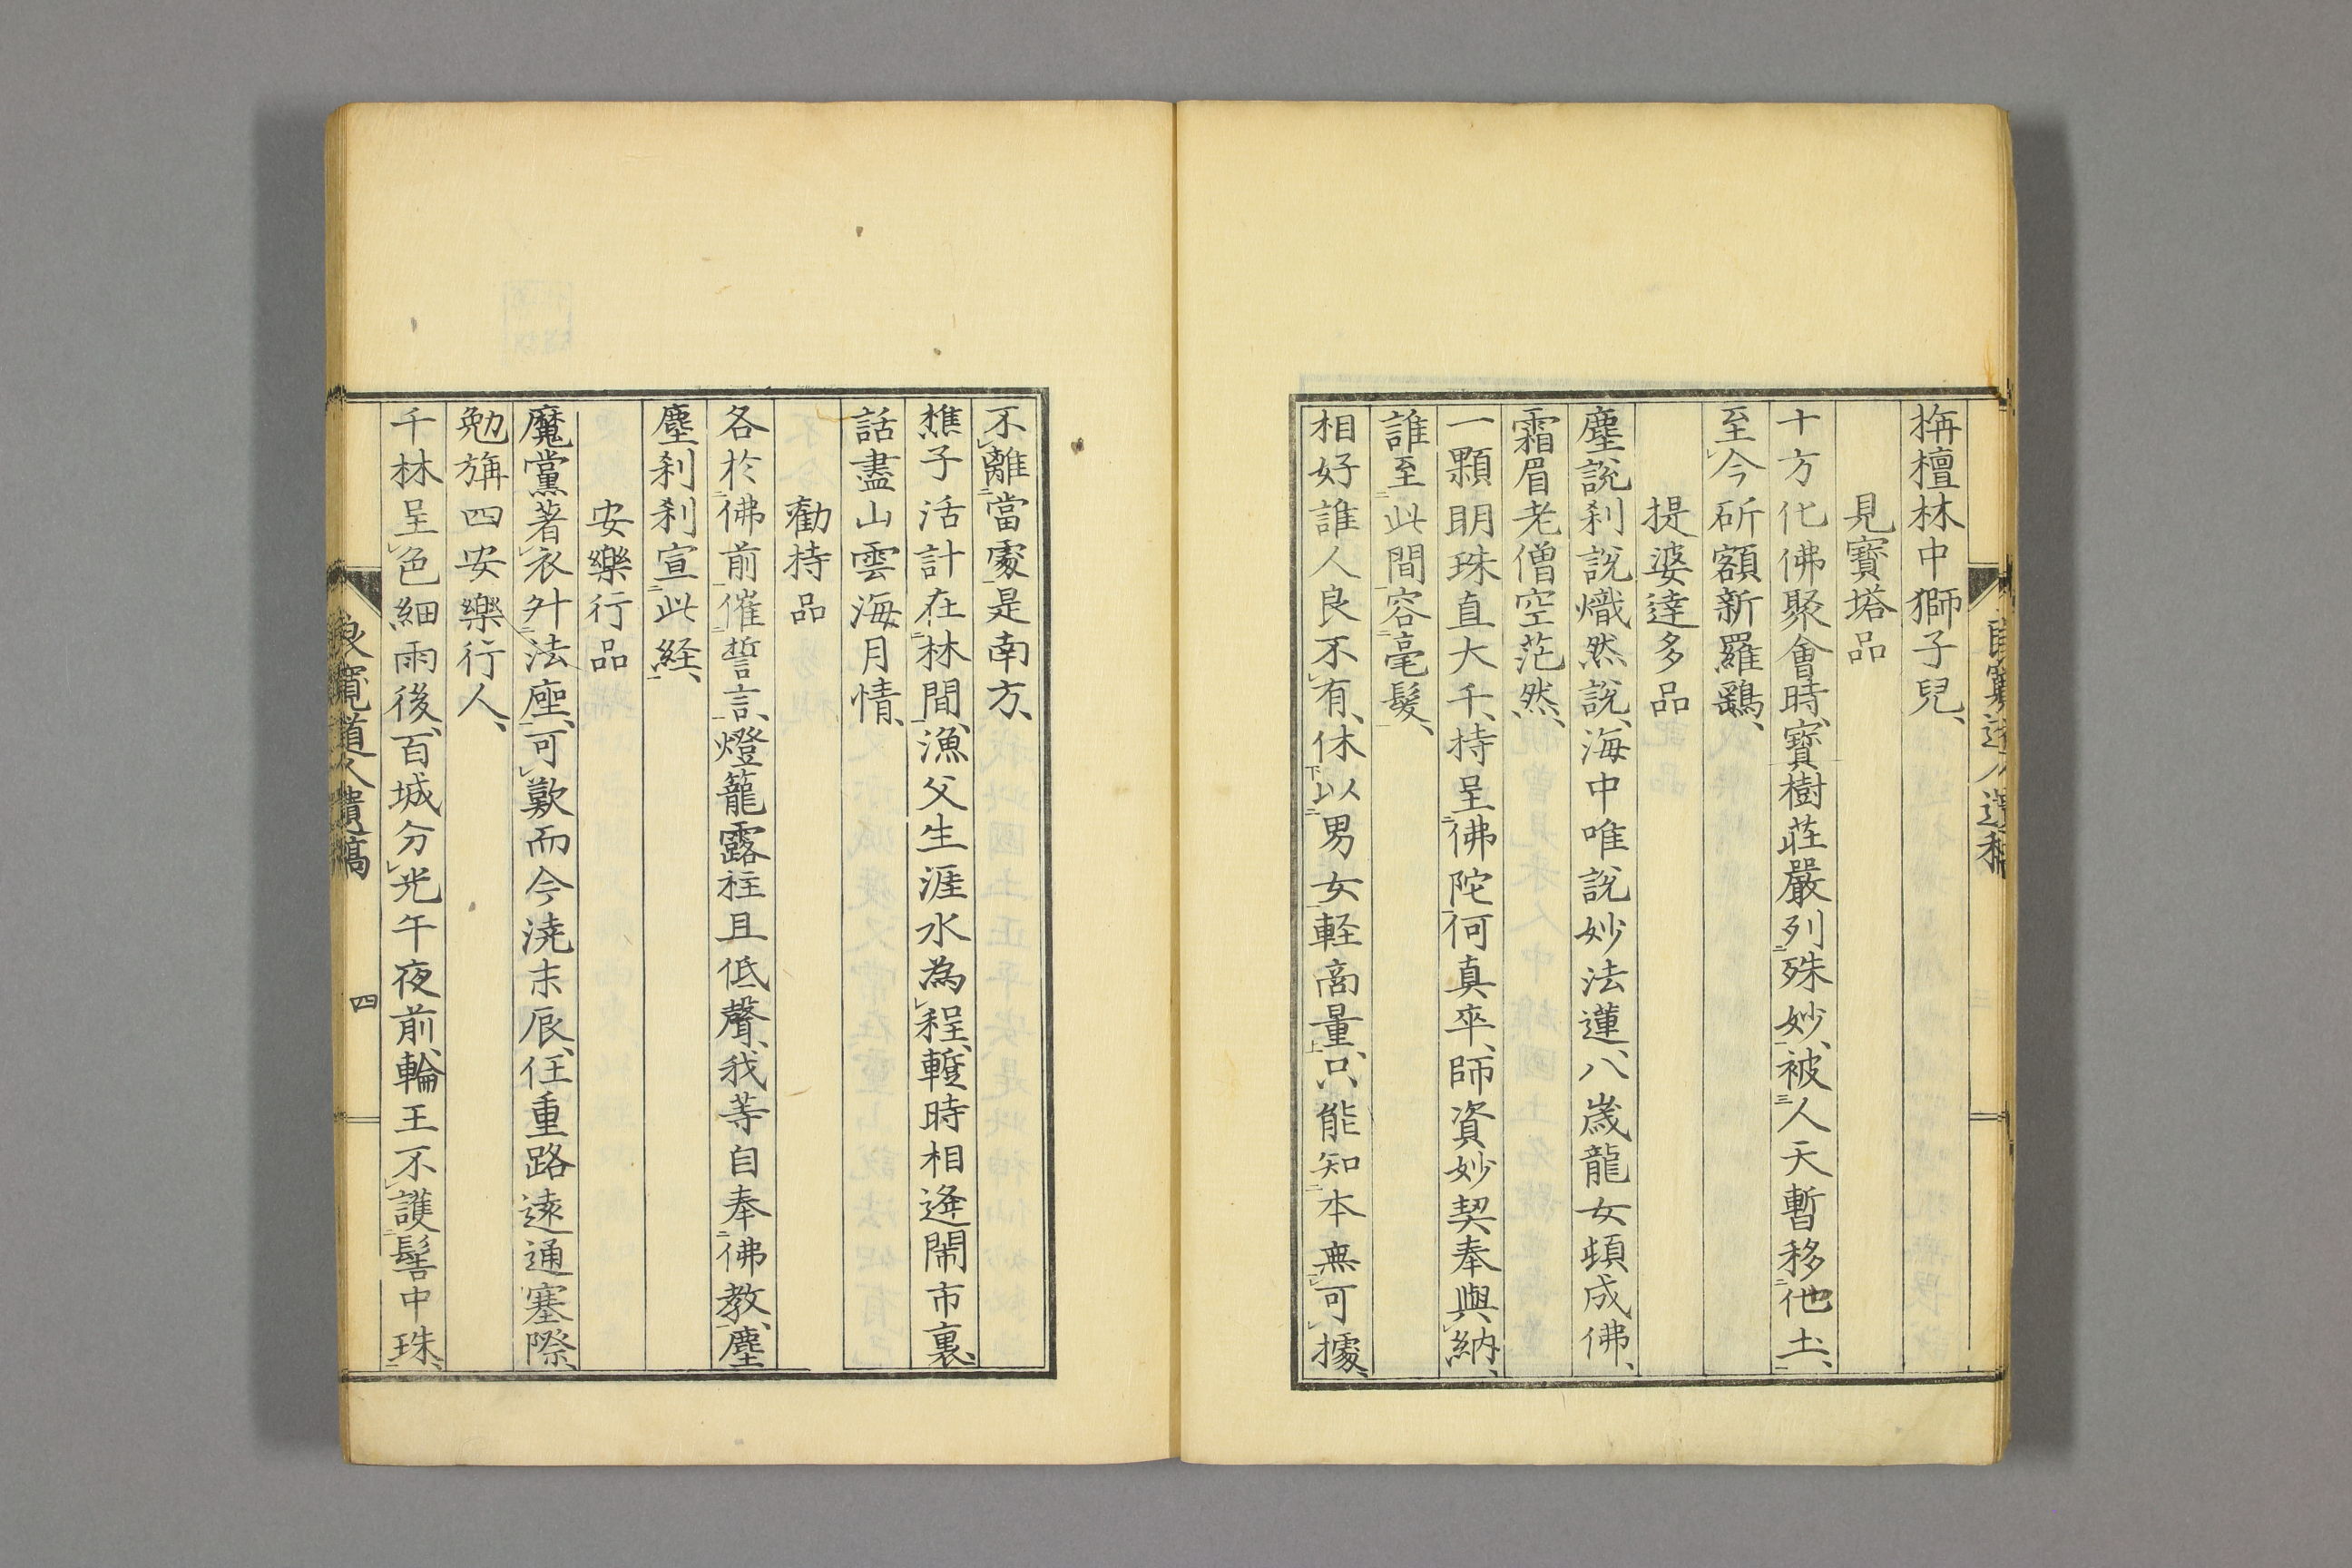 栴檀林中獅子兒、
見寶塔品
十方化佛聚會時、寶樹莊嚴列殊妙、被人天暫移他土、
至今斫額新羅鷂、
提婆達多品
塵說刹說熾然說、海中唯說妙法蓮、八歲龍女頓成佛、
霜眉老僧空茫然、
一顆明珠直大千、持呈佛陀何真卒、師資妙契奉與納、
誰至此間容毫髮、
相好誰人良不有、休以男女軽商量、只能知本無可據、
不離當處是南方、
樵子活計在林間、漁父生涯水為程、蹔時相逢閙市裏、
話盡山雲海月情、
勸持品
各於佛前催誓言、燈籠露柱且低聲、我等自奉佛教、塵
塵刹刹宣此経、
安樂行品
魔黨著衣升法座、可歎而今澆末辰、任重路遠通塞際、
勉旃四安樂行人、
千林呈色細雨後、百城分光午夜前、輪王不護髻中珠、
良寬道人遺稿
四